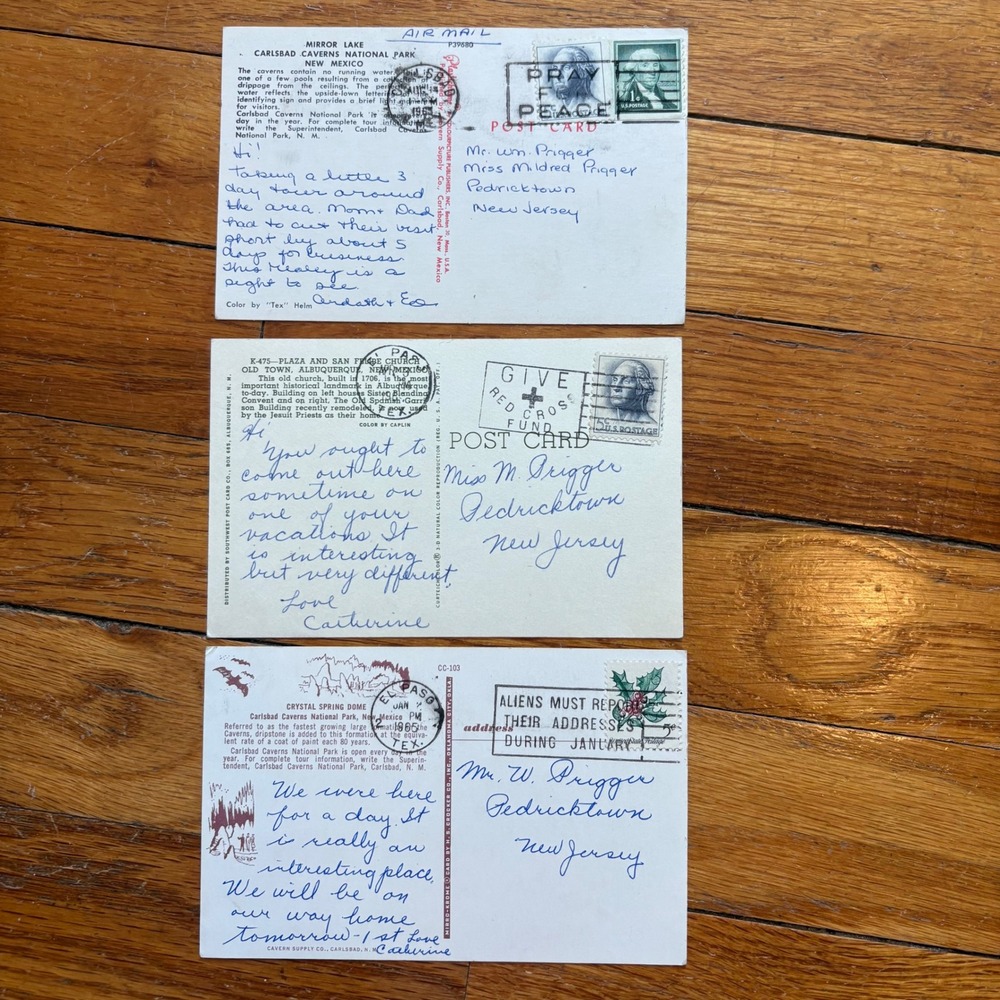 AIR MAIL
MIRROR LAKE
CARLSBAD CAVERNS NATIONAL PARK
NEW MEXICO
P39680
The caverns contain no running water
one of a few pools resulting from a
drippage from the ceilings. The
water reflects the upside-down
identifying sign and provides a brief
for visitors.
Carlsbad Caverns National Park is
day in the year. For complete tour
write the Superintendent, Carlsbad Caverns
National Park, N. M.
PRAY
FOR
PEACE
U.S. POSTAGE
POST CARD
Hi!
Taking a little 3
day tour around
the area. Mom + Dad
had to cut their visit
short by about 5
days for business.
This is a
sight to see
Ardath + Ed
Color by "Tex" Helm
COLOURPICTURE PUBLISHERS, INC., Boston 30, Mass., U.S.A.
Cavern Supply Co., Carlsbad, New Mexico
Mr. Wm. Prigger
Miss Mildred Prigger
Pedricktown
New Jersey
K-475—PLAZA AND SAN FELIPE CHURCH
OLD TOWN, ALBUQUERQUE, NEW MEXICO
This old church, built in 1706, is the most
important historical landmark in Albuquerque
to-day. Building on left houses Sister Blending
Convent and on right, The Old Spanish Garri-
son Building recently remodeled, is now used
by the Jesuit Priests as their home.
COLOR BY CAPLIN
DISTRIBUTED BY SOUTHWEST POST CARD CO., BOX 685, ALBUQUERQUE, N. M.
EL PASO
TEX.
GIVE
RED CROSS
FUND
5c
U.S. POSTAGE
POST CARD
Hi
You ought to
come out here
sometime on
one of your
vacations. It
is interesting
but very different.
Love
Catherine
Miss M. Prigger
Pedricktown
New Jersey
CC-103
CRYSTAL SPRING DOME
Carlsbad Caverns National Park, New Mexico
Referred to as the fastest growing large formation in the
Caverns, dripstone is added to this formation at the equiva-
lent rate of a coat of paint each 80 years.
Carlsbad Caverns National Park is open every day in the
year. For complete tour information, write the Superin-
tendent, Carlsbad Caverns National Park, Carlsbad, N. M.
EL PASO
JAN
PM
1965
TEX.
ALIENS MUST REPORT
THEIR ADDRESSES
DURING JANUARY
5c
address
We were here
for a day. It
is really an
interesting place.
We will be on
our way home
tomorrow - 1st Love
Catherine
CAVERN SUPPLY CO., CARLSBAD, N. M.
Mr. W. Prigger
Pedricktown
New Jersey